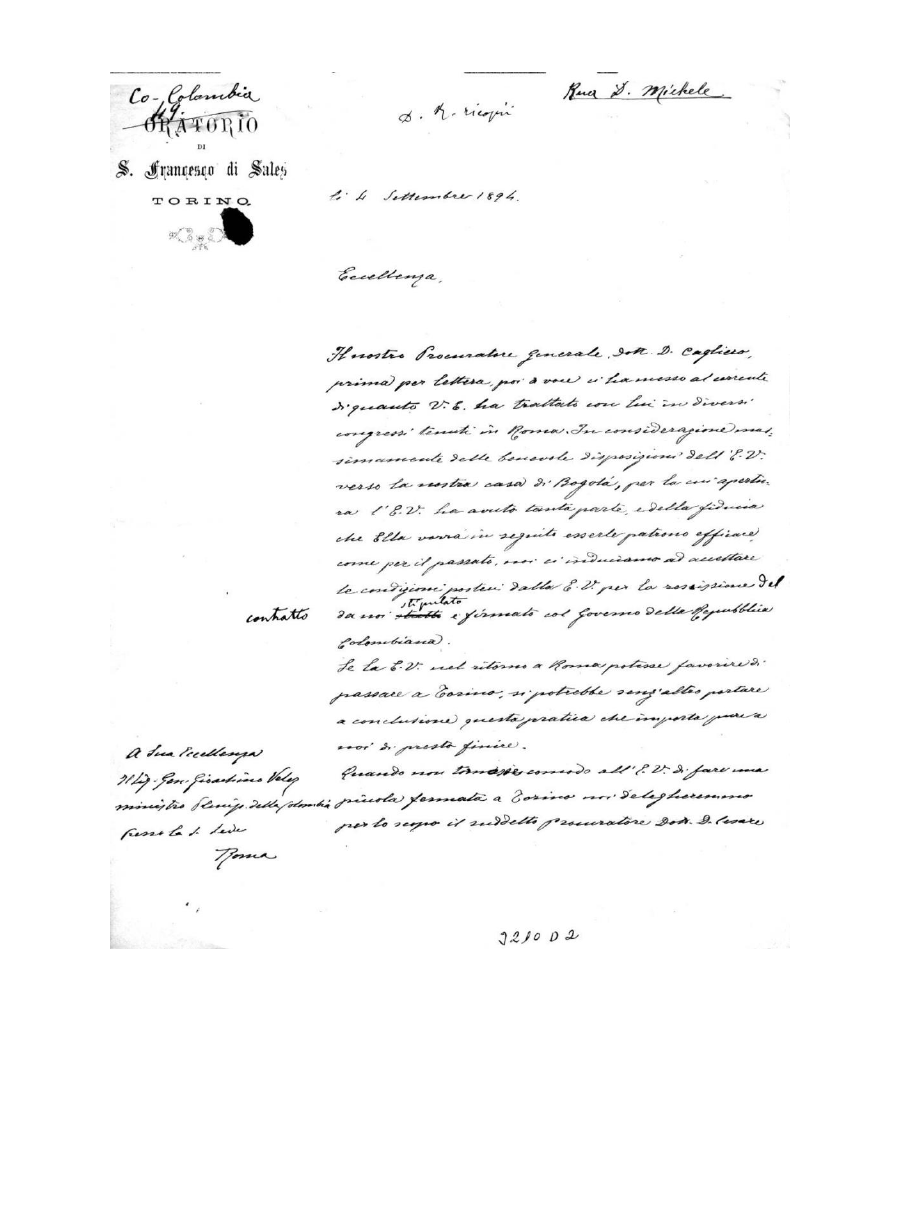 Co - Colombia
49.
Rua D. Michele
D. R. ricopii
ORATORIO
DI
S. Francesco di Sales
TORINO
li 4 Settembre 1894.
Eccellenza,
Il nostro Procuratore Generale, Dott. D. Cagliero,
prima per lettera, poi a voce ci ha messo al corrente
di quanto V. E. ha trattato con lui in diversi
congressi tenuti in Roma. In considerazione mas-
simamente delle benevole disposizioni dell'E. V.
verso la nostra casa di Bogotá, per la cui apertu-
ra l'E. V. ha avuto tanta parte, e della fiducia
che Ella vorrà in seguito esserle patrono efficace
come per il passato, noi ci induciamo ad accettare
le condizioni posteci dalla E. V. per la rescissione del
contratto da noi stipulato e firmato col Governo della Repubblica
Colombiana.
Se la E. V. nel ritorno a Roma potesse favorire di
passare a Torino, si potrebbe senz'altro portare
a conclusione questa pratica che importa pure a
noi di presto finire.
Quando non tornasse comodo all'E. V. di fare una
piccola fermata a Torino noi delegheremmo
per lo scopo il suddetto Procuratore Dott. D. Cesare
A Sua Eccellenza
Il Sig. Gen. Gioachino Velez
ministro Plenip. della Colombia
presso la S. Sede
Roma
3210 D 2